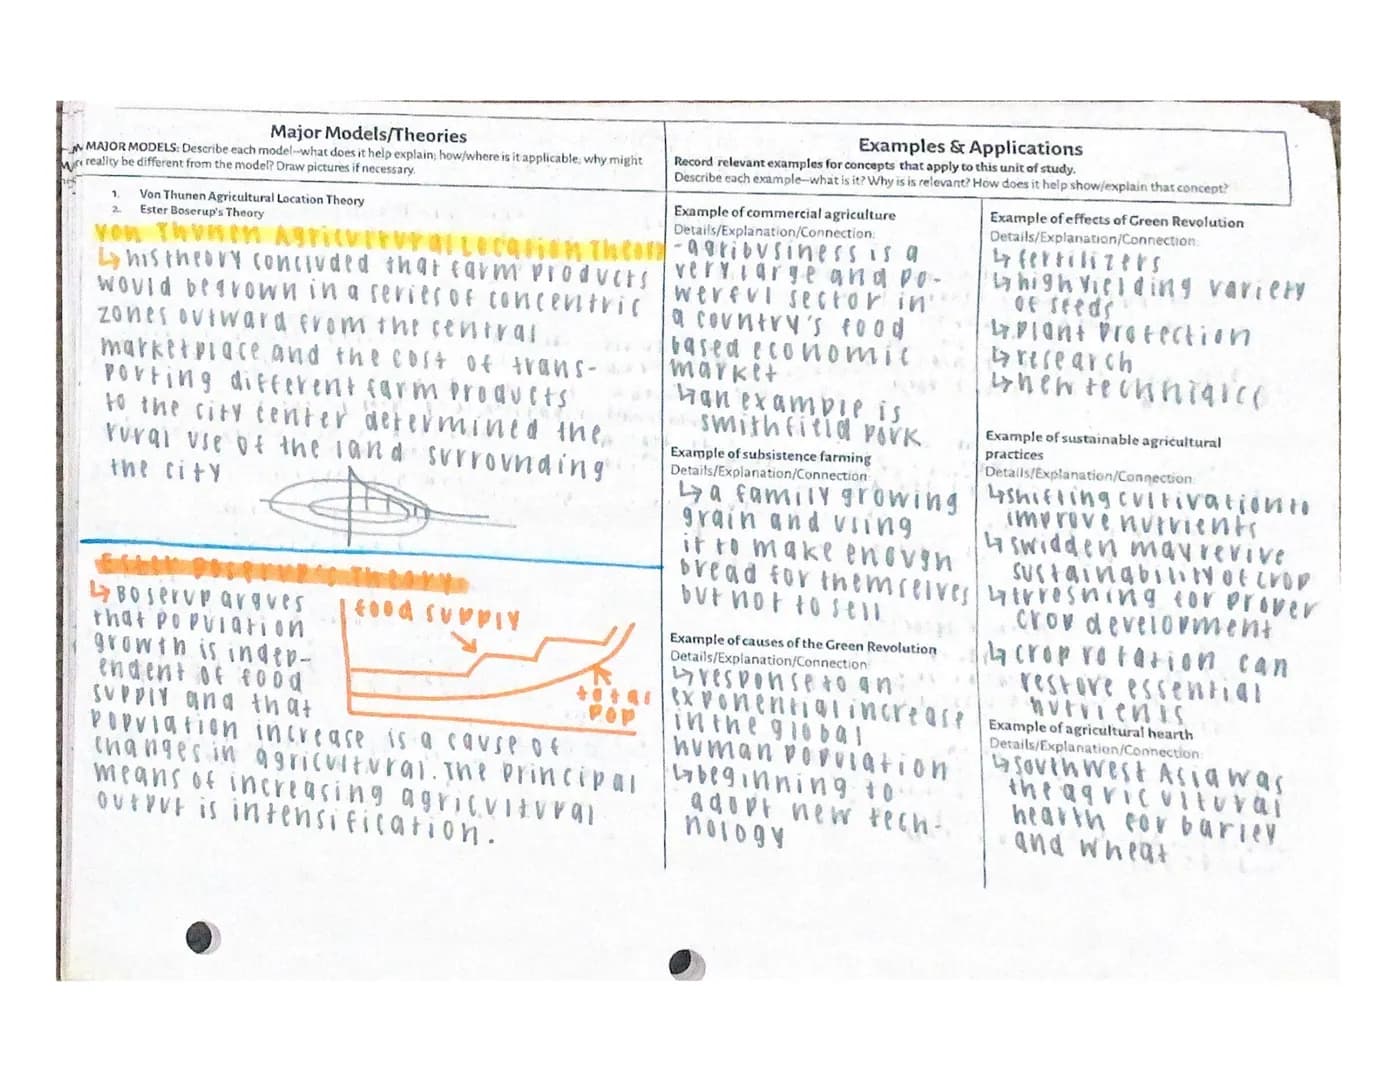 Major Models/Theories
MAJOR MODELS: Describe each model--what does it help explain; how/where is it applicable, why might
reality be different from the model? Draw pictures if necessary.
1. Von Thunen Agricultural Location Theory
2. Ester Boserup's Theory
Von Thunen Agricultural Location Theory
↳ his theory concluded that farm products
would be grown in a series of concentric
zones outward from the central
marketplace and the cost of trans-
porting different farm products
to the city center determined the
rural use of the land surrounding
the city
Ester Boserup's Theory
↳ Boserup argues
that population
growth is indep-
endent of food
supply and that
population increase is a cause of
changes in agricultural. The principal
means of increasing agricultural
output is intensification.
food supply
total
pop
Examples & Applications
Record relevant examples for concepts that apply to this unit of study.
Describe each example--what is it? Why is is relevant? How does it help show/explain that concept?
Example of commercial agriculture
Details/Explanation/Connection:
- agribusiness is a
very large and po-
werful sector in
a country's food
based economic
market
↳ an example is
smithfield pork
Example of subsistence farming
Details/Explanation/Connection:
↳ a family growing
grain and using
it to make enough
bread for themselves
but not to sell
Example of causes of the Green Revolution
Details/Explanation/Connection:
↳ response to an
exponential increase
in the global
human population
↳ beginning to
adopt new tech-
nology
Example of effects of Green Revolution
Details/Explanation/Connection:
↳ fertilizers
↳ high yielding variety
of seeds
↳ plant protection
↳ research
↳ new
Example of sustainable agricultural
practices
Details/Explanation/Connection:
↳ shifting cultivation to
improve nutrients
↳ swidden may revive
sustainability of crop
↳ for proper
crop development
↳ crop rotation can
restore essential
nutrients
Example of agricultural hearth
Details/Explanation/Connection:
↳ Southwest Asia was
the agricultural
hearth for barley
and wheat